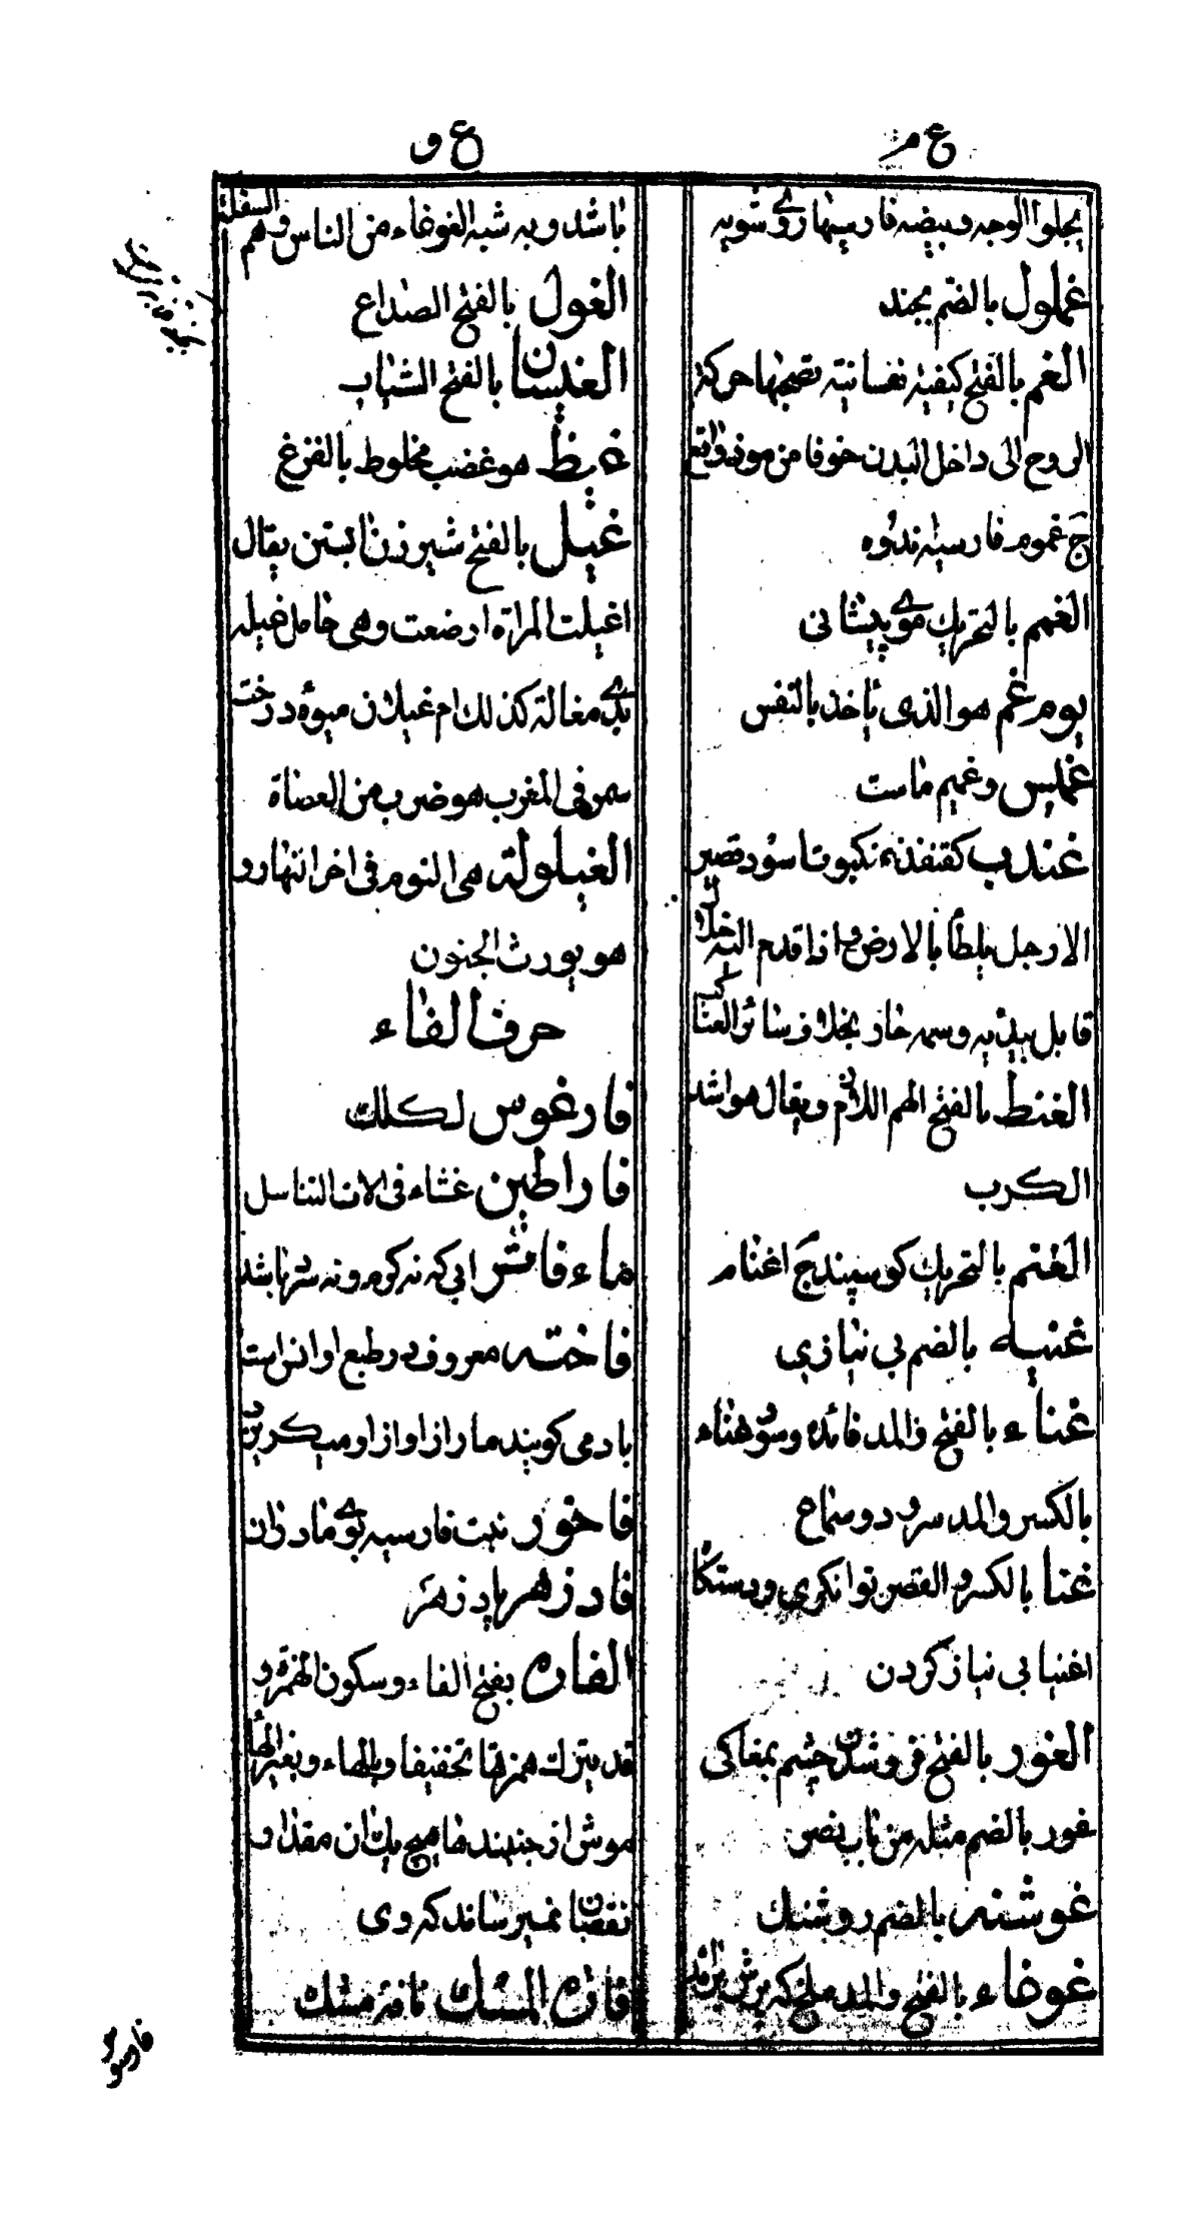 غ م
غ و
يجلوا الوجه وبيضه فارسيتها روے شويه
غملول بالضم مجند
الغم بالفتح كيفية نفسانية تصحبها حركة
الروح الى داخل البدن خوفا من موذ واقع
ج غموم فارسيته اندوه
الغمم بالتحريك موے پيشانى
يوم غم هو الذى ياخذ بالنفس
غمليس وغميم ماست
غندب كقنفذ عنكبوت اسود قصير
الارجل يلطأ بالارض واذا قدم اليه
قابل بيديه وسمه حار بخلاف سائر العناكب
الغنط بالفتح الهم اللازم ويقال هو اشد
الكرب
الغنم بالتحريك كوسپند ج اغنام
غنيه بالضم بى نيازى
غناء بالفتح والمد فائده وسود هناء
بالكسر والمد سرود وسماع
غنا بالكسر والقصر توانكرى ودستكا
اغنيا بى نياز كردن
الغور بالفتح فرو شدن چشم بمغاكى
غور بالضم مثله من باب نصر
غوشنه بالضم روشنك
غوغاء بالفتح والمد ملخ كه پرش
باشد وبه شبه الغوغاء من الناس وهم السفلة
الغول بالفتح الصداع
الغيسان بالفتح الشباب
غيظ هو غضب مخلوط بالفزع
غيل بالفتح شير زن ابستن يقال
اغيلت المراة ارضعت وهى حامل غيله
بدے مغالة كذلك ام غيلان ميوۀ درخت
سمر فى المغرب هو ضرب من العضاة
الغيلولة هى النوم فى اخر النهار و
هو يورث الجنون
حرف الفاء
فارغوس لكلك
فاراطين غشاء فى الات التناسل
ماء فاتش ابى كه نه كرم ونه سرد باشد
فاخته معروف در طبع او انس است
بادمى كويند مار از اواز او ميكريزد
فاخور نبت فارسيه بوے مادران
فادزهر پادزهر
الفارة بفتح الفاء وسكون الهمزة و
قد يترك همزتها تخفيفا وبالهاء وبغير الهاء
موش از جنبندها هيچ يك ان مقدار
نقصان نميرساند كه وى
فارة المسك نافه مشك